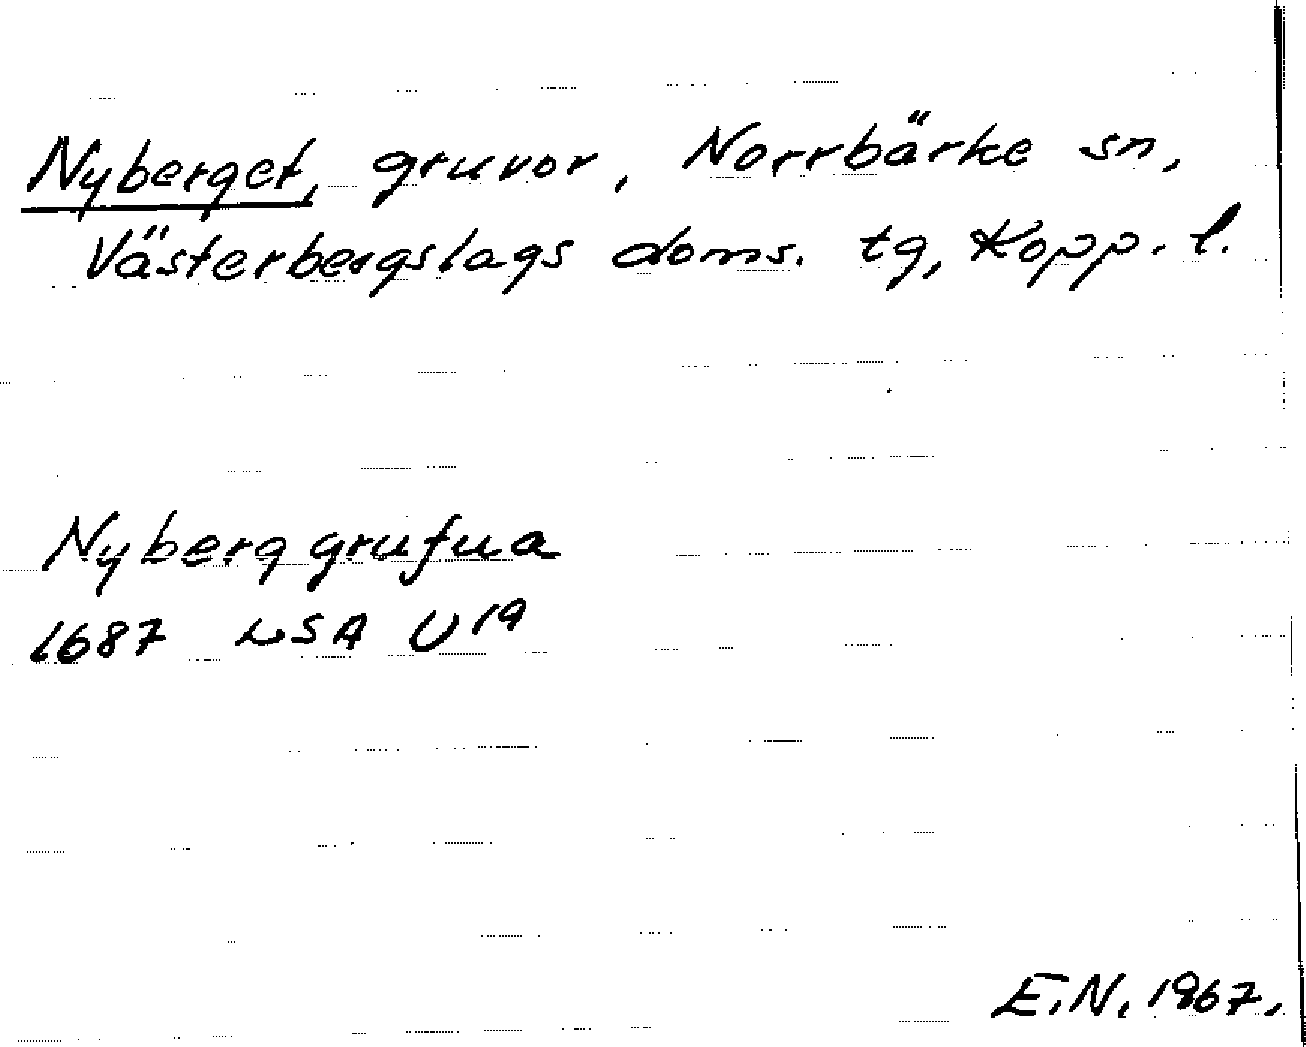 Nyberget, gruvor, Norrbärke sn,
Västerbergslags doms. tg, Kopp. l.
Nyberg grufua
1687 LSA U19
E.N. 1967.